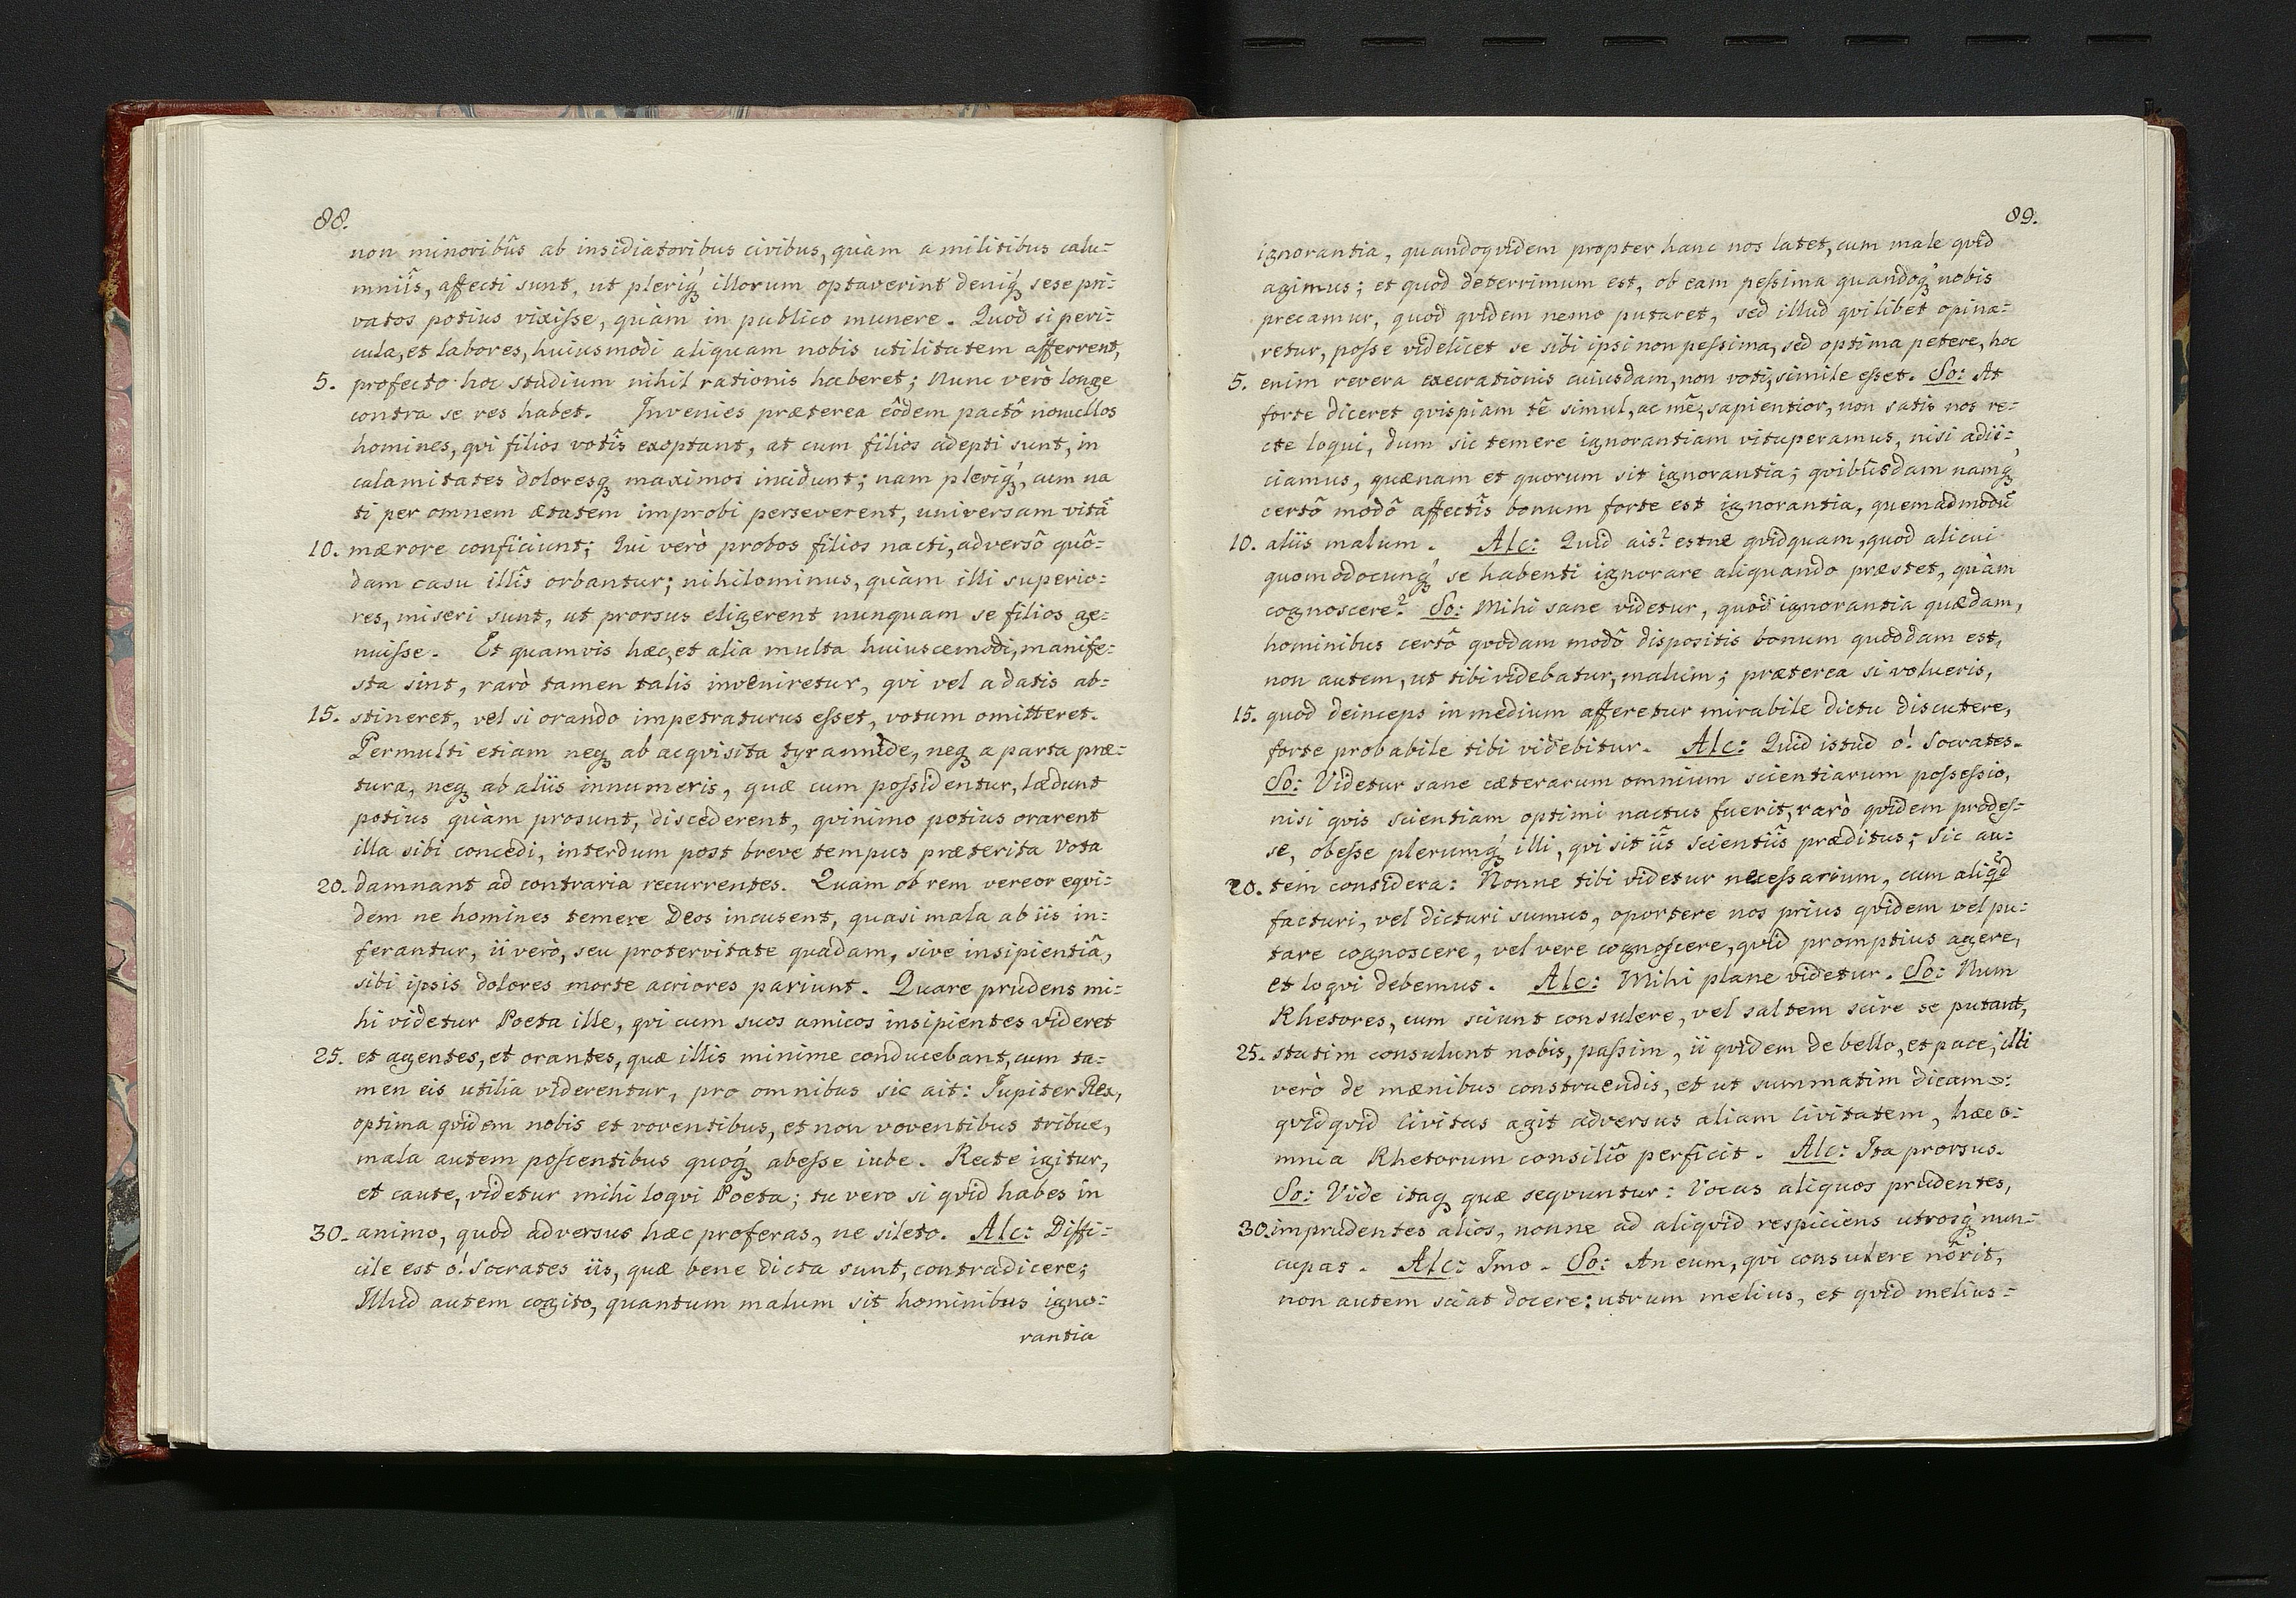 88.
non minoribûs ab insidiatoribus civibus, quàm a militibus calu=
mniîs, affecti sunt, ut pleriq́ illorum optaverint deniq́ sese pri=
vatos potius vixiſse, quàm in publico munere. Quod si peri=
cula, et labores, huiusmodi aliquam nobis utilitatem afferrent,
5. profecto hoc studium nihil rationis haberet; Nunc verò longe
contra se res habet. Invenies præterea eôdem pactô nonnullos
homines, qvi filios votîs exoptant, at cum filios adepti sunt, in
calamitates doloresq maximos incidunt; nam pleriq́, cum na
ti per omnem ætatem improbi perseverent, universam vitā
10. mærore conficiunt; Qui verò probos filios nacti, adversô quô=
dam casu illîs orbantur; nihilominus, quàm illi superio=
res, miseri sunt, ut prorsus eligerent nunquam se filios ge=
nuiſse. Et quamvis hæc, et alia multa huiuscemodi, manife=
sta sint, rarò tamen talis inveniretur, qvi vel a datis ab=
15. stineret, vel si orando impetraturus eſset, votum omitteret.
Permulti etiam neq ab acqvisita tyrannide, neq a parta præ=
tura, neq ab aliis innumeris, quæ cum poſsidentur, lædunt
potius quàm prosunt, discederent, qvinimo potius orarent
illa sibi concedi, interdum post breve tempus præterita Vota
20. damnant ad contraria recurrentes. Quam ob rem vereor eqvi=
dem ne homines temere Deos incusent, quasi mala ab iis in=
ferantur, ii verò, seu protervitate quadam, sive insipientiâ,
sibi ipsis dolores morte acriores pariunt. Quare prudens mi=
hi videtur Poeta ille, qvi cum suos amicos insipientes videret
25. et agentes, et orantes, quæ illis minime conducebant, cum ta=
men eis utilia viderentur, pro omnibus sic ait: Jupiter Rex,
optima qvidem nobis et voventibus, et non voventibus tribue,
mala autem poscentibus quoq́ abeſse iube. Recte igitur,
et caute, videtur mihi loqvi Poeta; tu vero si qvid habes in
30. animo, quod adversus hæc proferas, ne sileto. Alc: Diffi=
cile est ó! Socrates iis, quæ bene dicta sunt, contradicere;
Illud autem cogito, quantum malum sit hominibus igno=
rantia
89.
ignorantia, quandoqvidem propter hanc nos latet, cum male qvid
agimus; et quod deterrimum est, ob eam peſsima quandoq́ nobis
precamur, quod qvidem nemo putaret, sed illud qvilibet opina=
retur, poſse videlicet se sibi ipsi non peſsima, sed optima petere, hoc
5. enim revera execrationis cuiusdam, non voti, simile eſset. So: At
forte diceret qvispiam tê simul, ac mê, sapientior, non satis nos re=
cte loqui, dum sic temere ignorantiam vituperamus, nisi adii=
ciamus, quænam et quorum sit ignorantia; qvibûsdam namq́
certô modô affectîs bonum forte est ignorantia, quemadmodū
10. aliis malum. Alc: Quid ais? estne qvidquam, quod alicui
quomodocunq́ se habenti ignorare aliquando præstet, quàm
cognoscere? So: Mihi sane videtur, quod ignorantia quædam,
hominibus certô qvodam modô dispositis bonum quoddam est,
non autem, ut tibi videbatur, malum; præterea si volueris,
15. quod deinceps in medium afferetur mirabile dictu discutere,
forte probabile tibi videbitur. Alc: Quid istud ó! Socrates.
So: Videtur sane cæterarum omnium scientiarum poſseſsio,
nisi qvis scientiam optimi nactus fuerit, rarò qvidem prodeſ=
se, obeſse plerumq́ illi, qvi sit iîs scientiîs præditus; Sic au=
20. tem considera: Nonne tibi videtur neceſsarium, cum aliq̄d
facturi, vel dicturi sumus, oportere nos prius qvidem vel pu=
tare cognoscere, vel vere cognoscere, qvid promptius agere,
et loqvi debemus. Alc: Mihi plane videtur. So: Num
Rhetores, cum sciunt consulere, vel saltem scire se putant,
25. statim consulunt nobis, paſsim, ii qvidem de bello, et pace, illi
verò de mænibus construendis, et ut summatim dicam:
qvidqvid Civitas agit adversus aliam Civitatem, hæc o=
mnia Rhetorum consiliô perficit. Alc: Ita prorsus.
So: Vide itaq quæ seqvuntur: Vocas aliquos prudentes,
30. imprudentes alios, nonne ad aliqvid respiciens utrosq́ nun=
cupas. Alc: Imo. So: An eum, qvi consulere nôrit,
non autem sciat docere: utrum melius, et qvid melius=